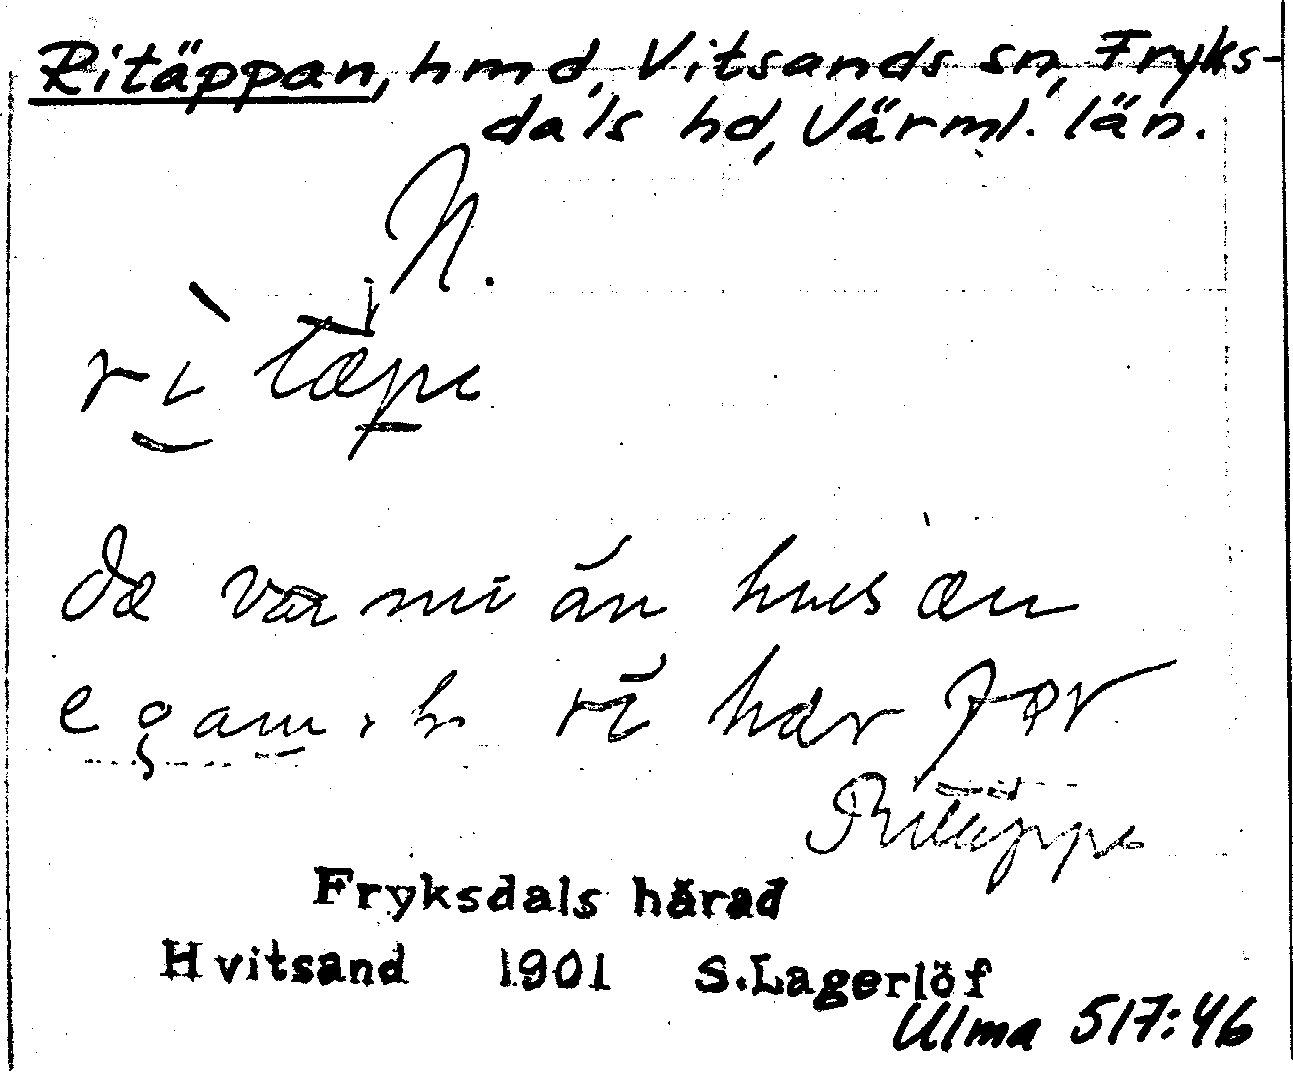 Ritäppan, hmd, Vitsands sn, Fryks-
dals hd, Värml. län.
N.
rì tæpe
dæ va mi än hus æn
har för
Ritäppe
Fryksdals härad
Hvitsand 1901 S. Lagerlöf
Ulma 517:46